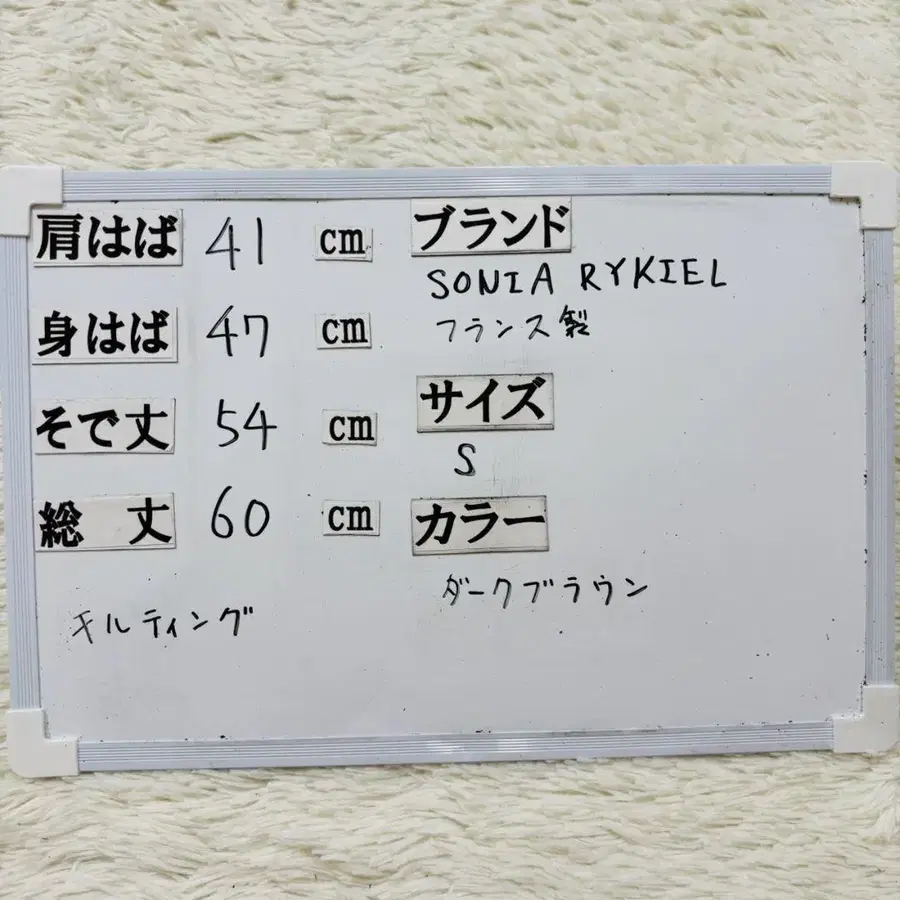 肩はば 41 cm
身はば 47 cm
そで丈 54 cm
総 丈 60 cm
キルティング
ブランド
SONIA RYKIEL
フランス製
サイズ
S
カラー
ダークブラウン